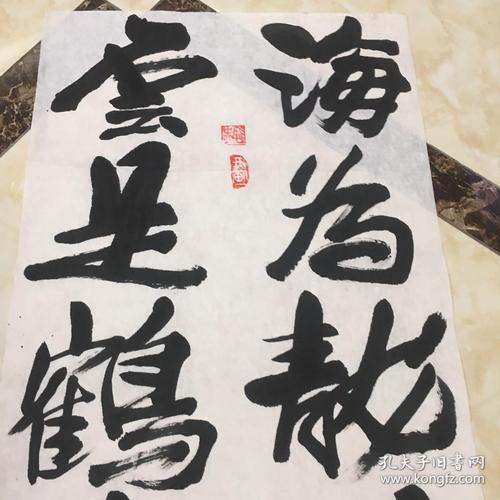 海为龙
云是鹤
孔夫子旧书网
www.kongfz.com